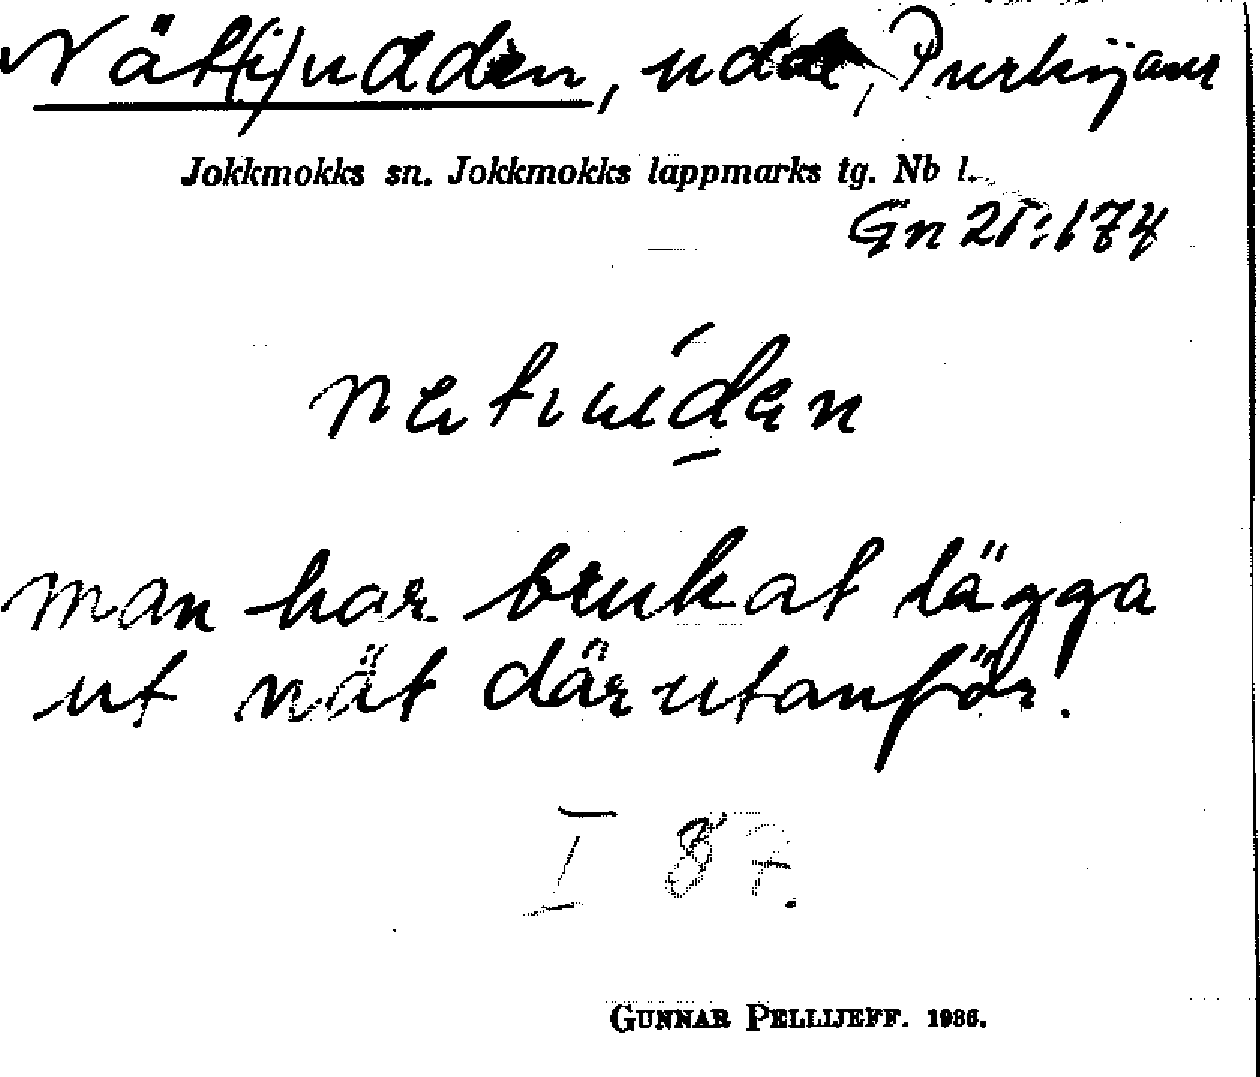 Nät(i)udden, udde, Purkijaur
Jokkmokks sn. Jokkmokks lappmarks tg. Nb l.
Gn 25:174
man har brukat lägga
ut nät därutanför.
I 87.
GUNNAR PELLIJEFF. 1986.